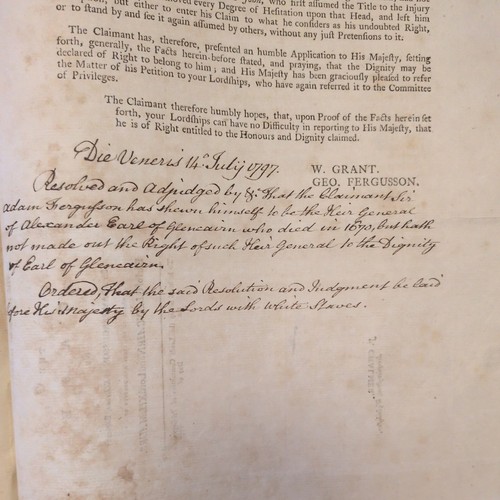 moved every Degree of Hesitation upon that Head, and left him
or to stand by and see it again assumed by others, without any just Pretensions to it.
The Claimant has, therefore, presented an humble Application to His Majesty, setting
forth, generally, the Facts herein-before stated, and praying, that the Dignity may be
declared of Right to belong to him; and His Majesty has been graciously pleased to refer
the Matter of his Petition to your Lordships, who have again referred it to the Committee
of Privileges.
The Claimant therefore humbly hopes, that, upon Proof of the Facts herein set
forth, your Lordships can have no Difficulty in reporting to His Majesty, that
he is of Right entitled to the Honours and Dignity claimed.
Die Veneris 14º July 1797.
W. GRANT.
GEO. FERGUSSON.
Resolved and Adjudged by &c That the Claimant Sir
Adam Fergusson has shewn himself to be the Heir General
of Alexander Earl of Glencairn who died in 1670, but hath
not made out the Right of such Heir General to the Dignity
of Earl of Glencairn.
Ordered, That the said Resolution and Judgment be laid
before His Majesty by the Lords with White Staves.